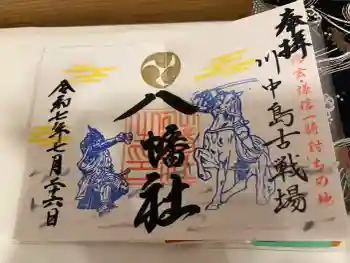 奉拝
川中島古戦場
信玄謙信一騎討ちの地
八幡社
令和七年七月二十六日